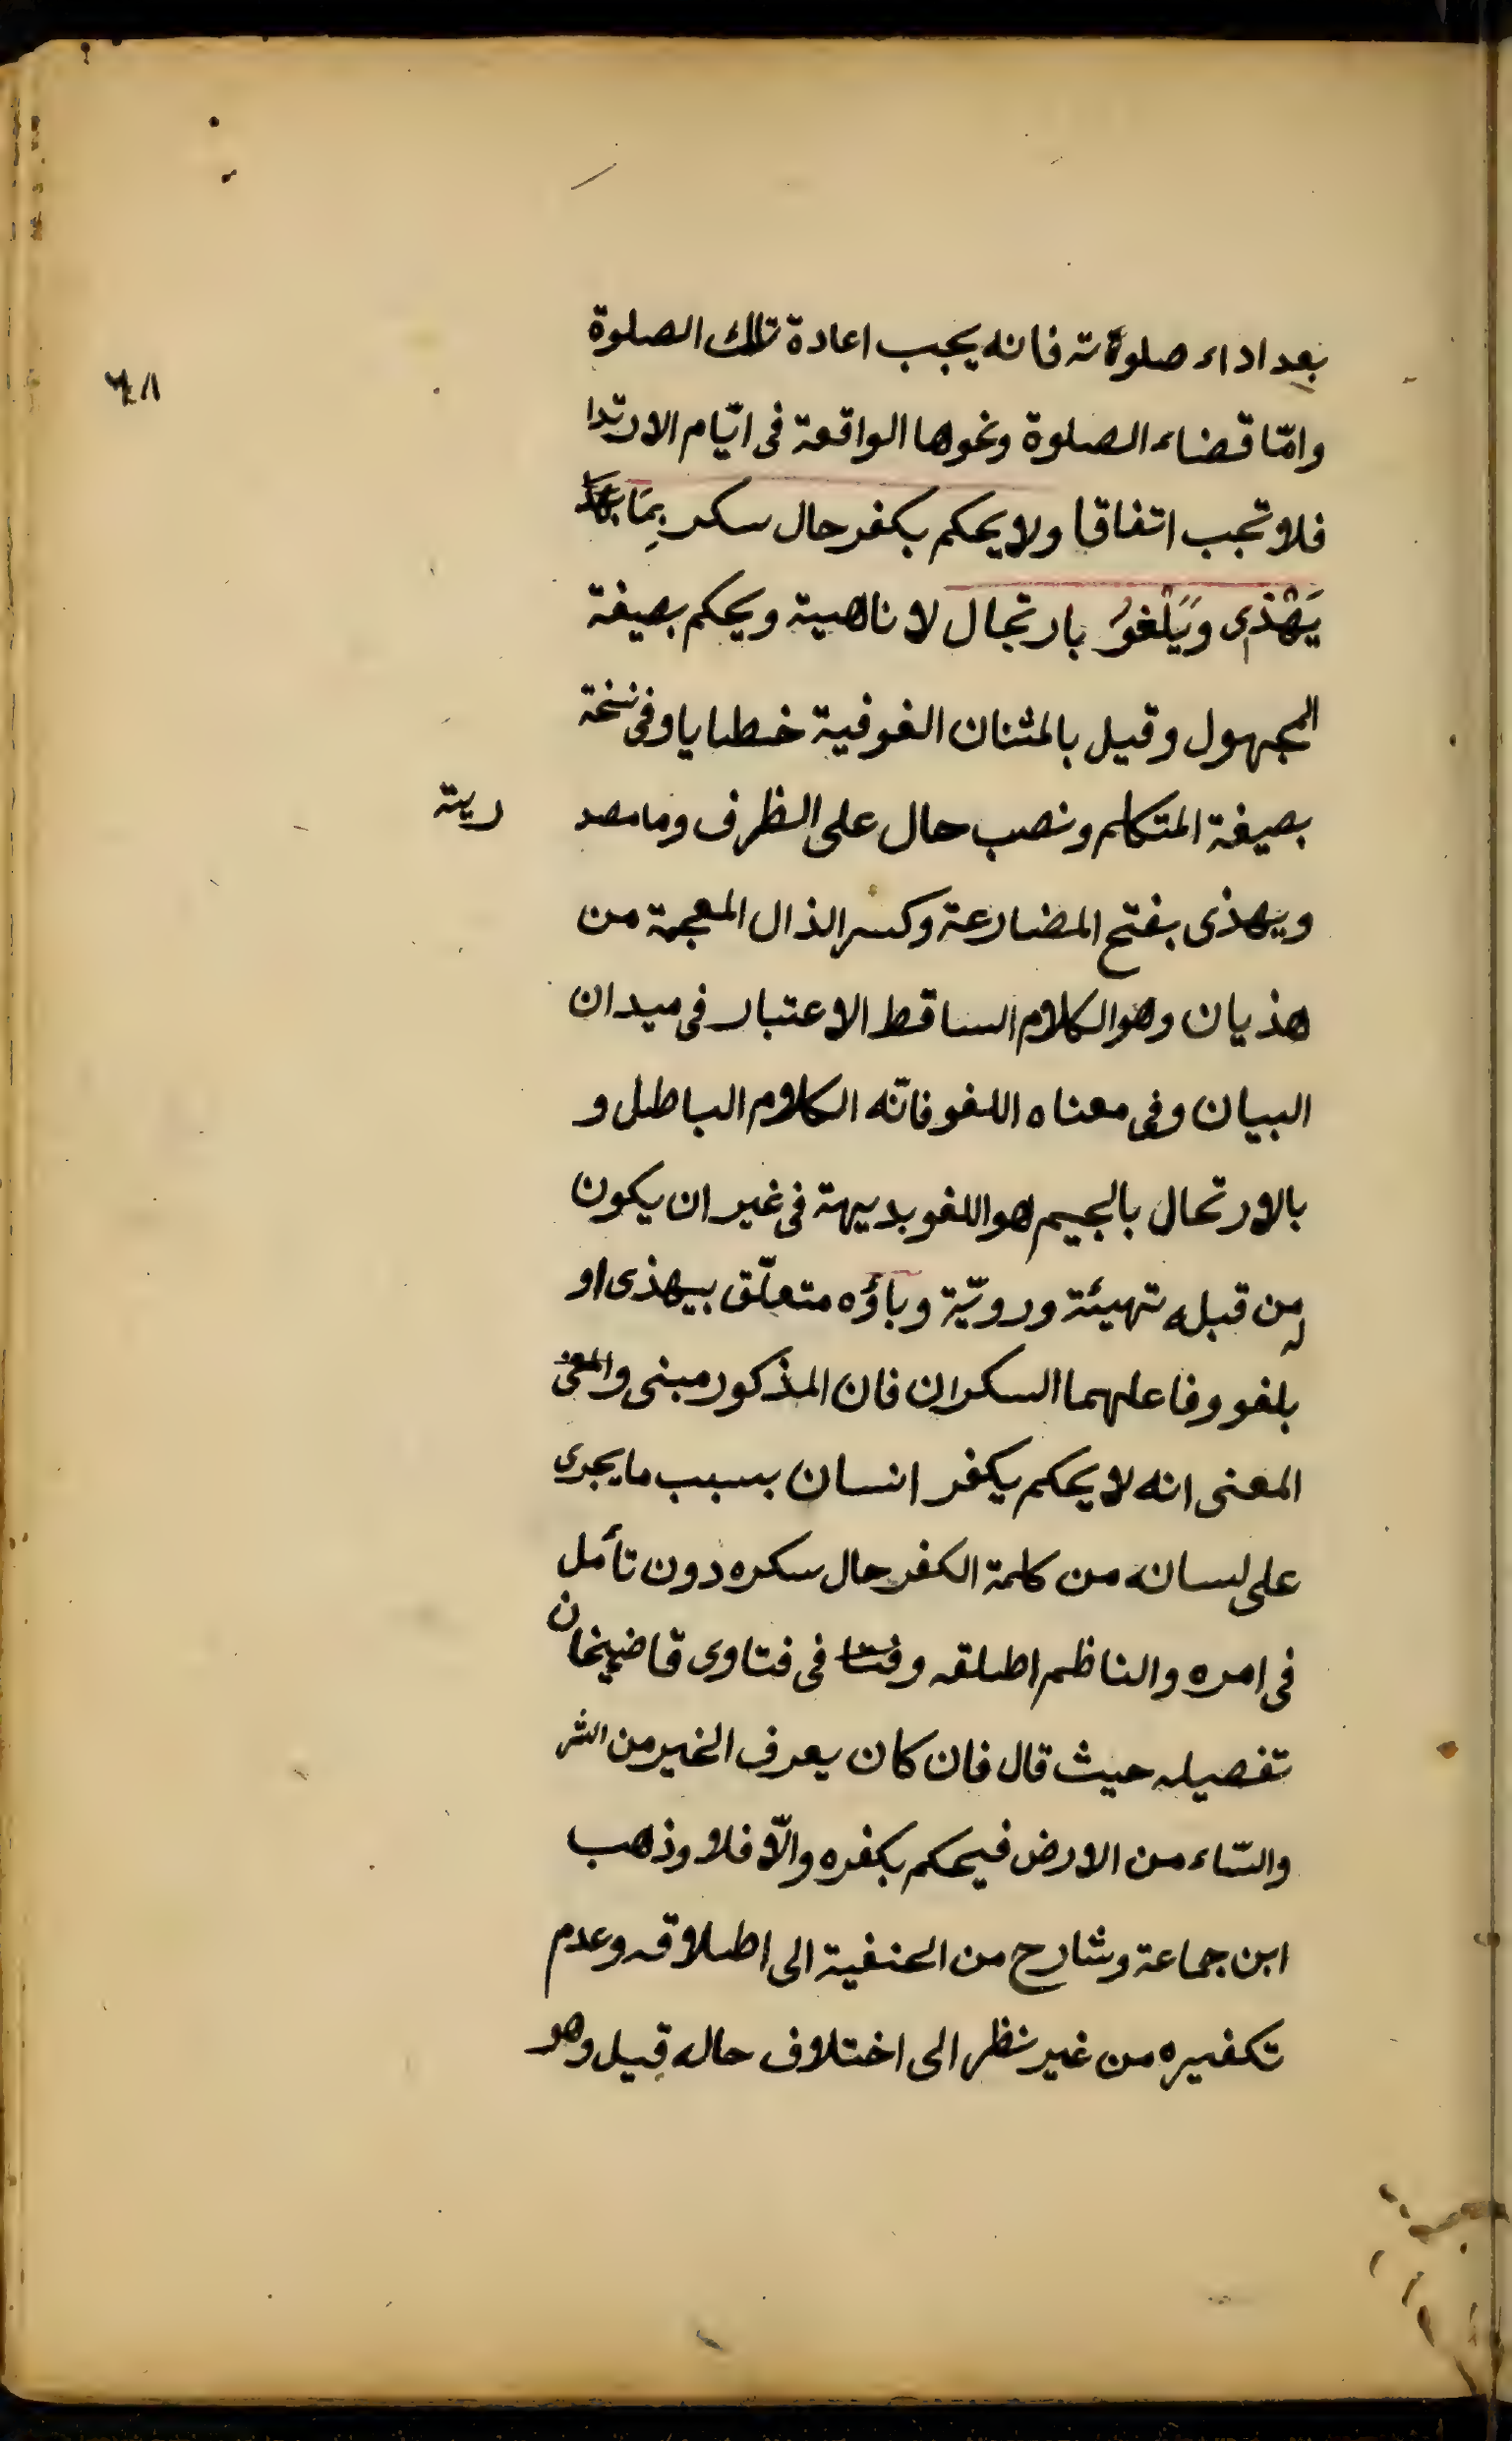 بعد اداء صلوته فانه يجب اعادة تلك الصلوة
وامّا قضاء الصلوة ونحوها الواقعة فى ايّام الارتدا
فلا تجب اتفاقا ولا يحكم بكفر حال سكر بِمَا
يَهْذِى وَيَلْغُو بارتجال لا ناهية ويحكم بصيغة
المجهول وقيل بالمثنان الفوفية خطابا وفى نسخة
بصيغة المتكلم ونصب حال على الظرف وما مصد رية
ويهذى بفتح المضارعة وكسر الذال المعجمة من
هذيان وهو الكلام الساقط الاعتبار فى ميدان
البيان وفى معناه اللغو فانّه الكلام الباطل و
بالارتحال بالجيم هو اللغو بديهة فى غير ان يكون
من قبله تهيئة ورويّة وباؤه متعلّق بيهذى او
بلغو وفاعلهما السكران فان المذكور مبنى والمعنى
المعنى انه لا يحكم بكفر انسان بسبب ما يجرى
على لسانه من كلمة الكفر حال سكره دون تأمل
فى امره والناظم اطلقه وفتا فى فتاوى قاضيخان
تفصيله حيث قال فان كان يعرف الخير من الشر
والسّاء من الارض فيحكم بكفره والّا فلا وذهب
ابن جماعة وشارح من الحنفية الى اطلاقه وعدم
تكفيره من غير نظر الى اختلاف حاله قيل وهو